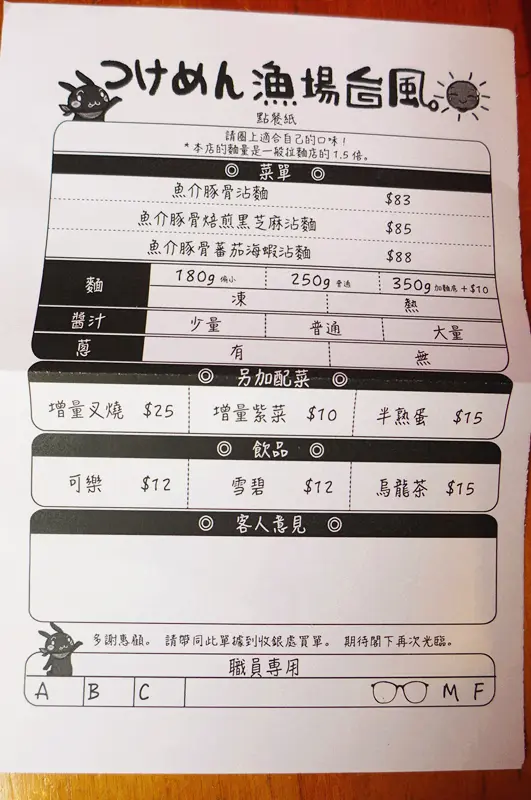 つけめん 漁場台風。
點餐紙
請圈上適合自己的口味！
*本店的麵量是一般拉麵店的1.5倍。
◎ 菜單 ◎
魚介豚骨沾麵 $83
魚介豚骨焙煎黑芝麻沾麵 $85
魚介豚骨蕃茄海蝦沾麵 $88
麵 180g 偏小 250g 普通 350g 加麵底 +$10
凍 熱
醬汁 少量 普通 大量
蔥 有 無
◎ 另加配菜 ◎
增量叉燒 $25 增量紫菜 $10 半熟蛋 $15
◎ 飲品 ◎
可樂 $12 雪碧 $12 烏龍茶 $15
◎ 客人意見 ◎
多謝惠顧。 請帶同此單據到收銀處買單。 期待閣下再次光臨。
職員專用
A B C M F